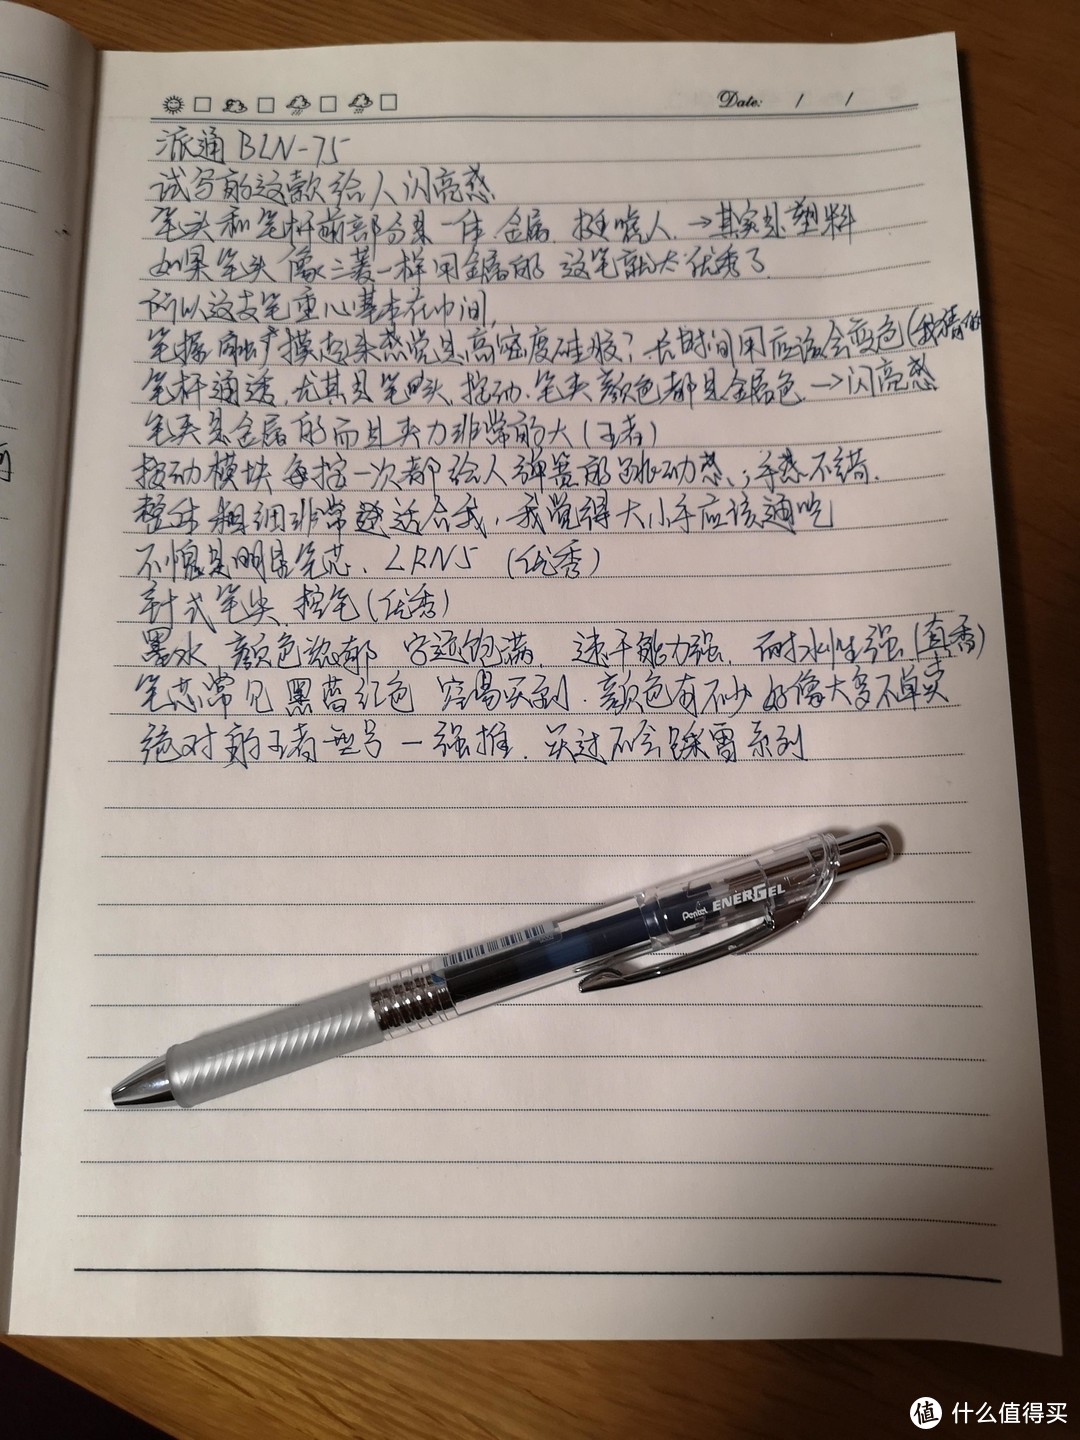 Date: / /
派通 BLN-75
试写的这款给人闪亮感
笔头和笔杆前部分是一体 金属. 挺唬人. →其实是塑料
如果笔头像三菱一样用金属的 这笔就太优秀了.
所以这支笔重心基本在中间,
笔握 摸起来感觉是高密度硅胶? 长时间用应该会变色(我猜的
笔杆通透, 尤其是笔头, 按动. 笔夹颜色都是金属色. →闪亮感
笔夹是金属的而且夹力非常的大 (王者)
按动模块 每按一次都给人弹簧的跳动感, ; 手感不错.
整体粗细非常 适合我, 我觉得大小手应该通吃
不愧是明星笔芯. LRN5 (优秀)
针式笔尖. 控笔(优秀)
墨水 颜色浓郁 字迹饱满. 速干能力强. 耐水性强(真香)
笔芯常见 黑蓝红色 容易买到. 颜色有不少 好像大多不单卖
绝对的王者型号 — 强推. 买过不会踩雷系列
Pentel ENERGEL
值 什么值得买